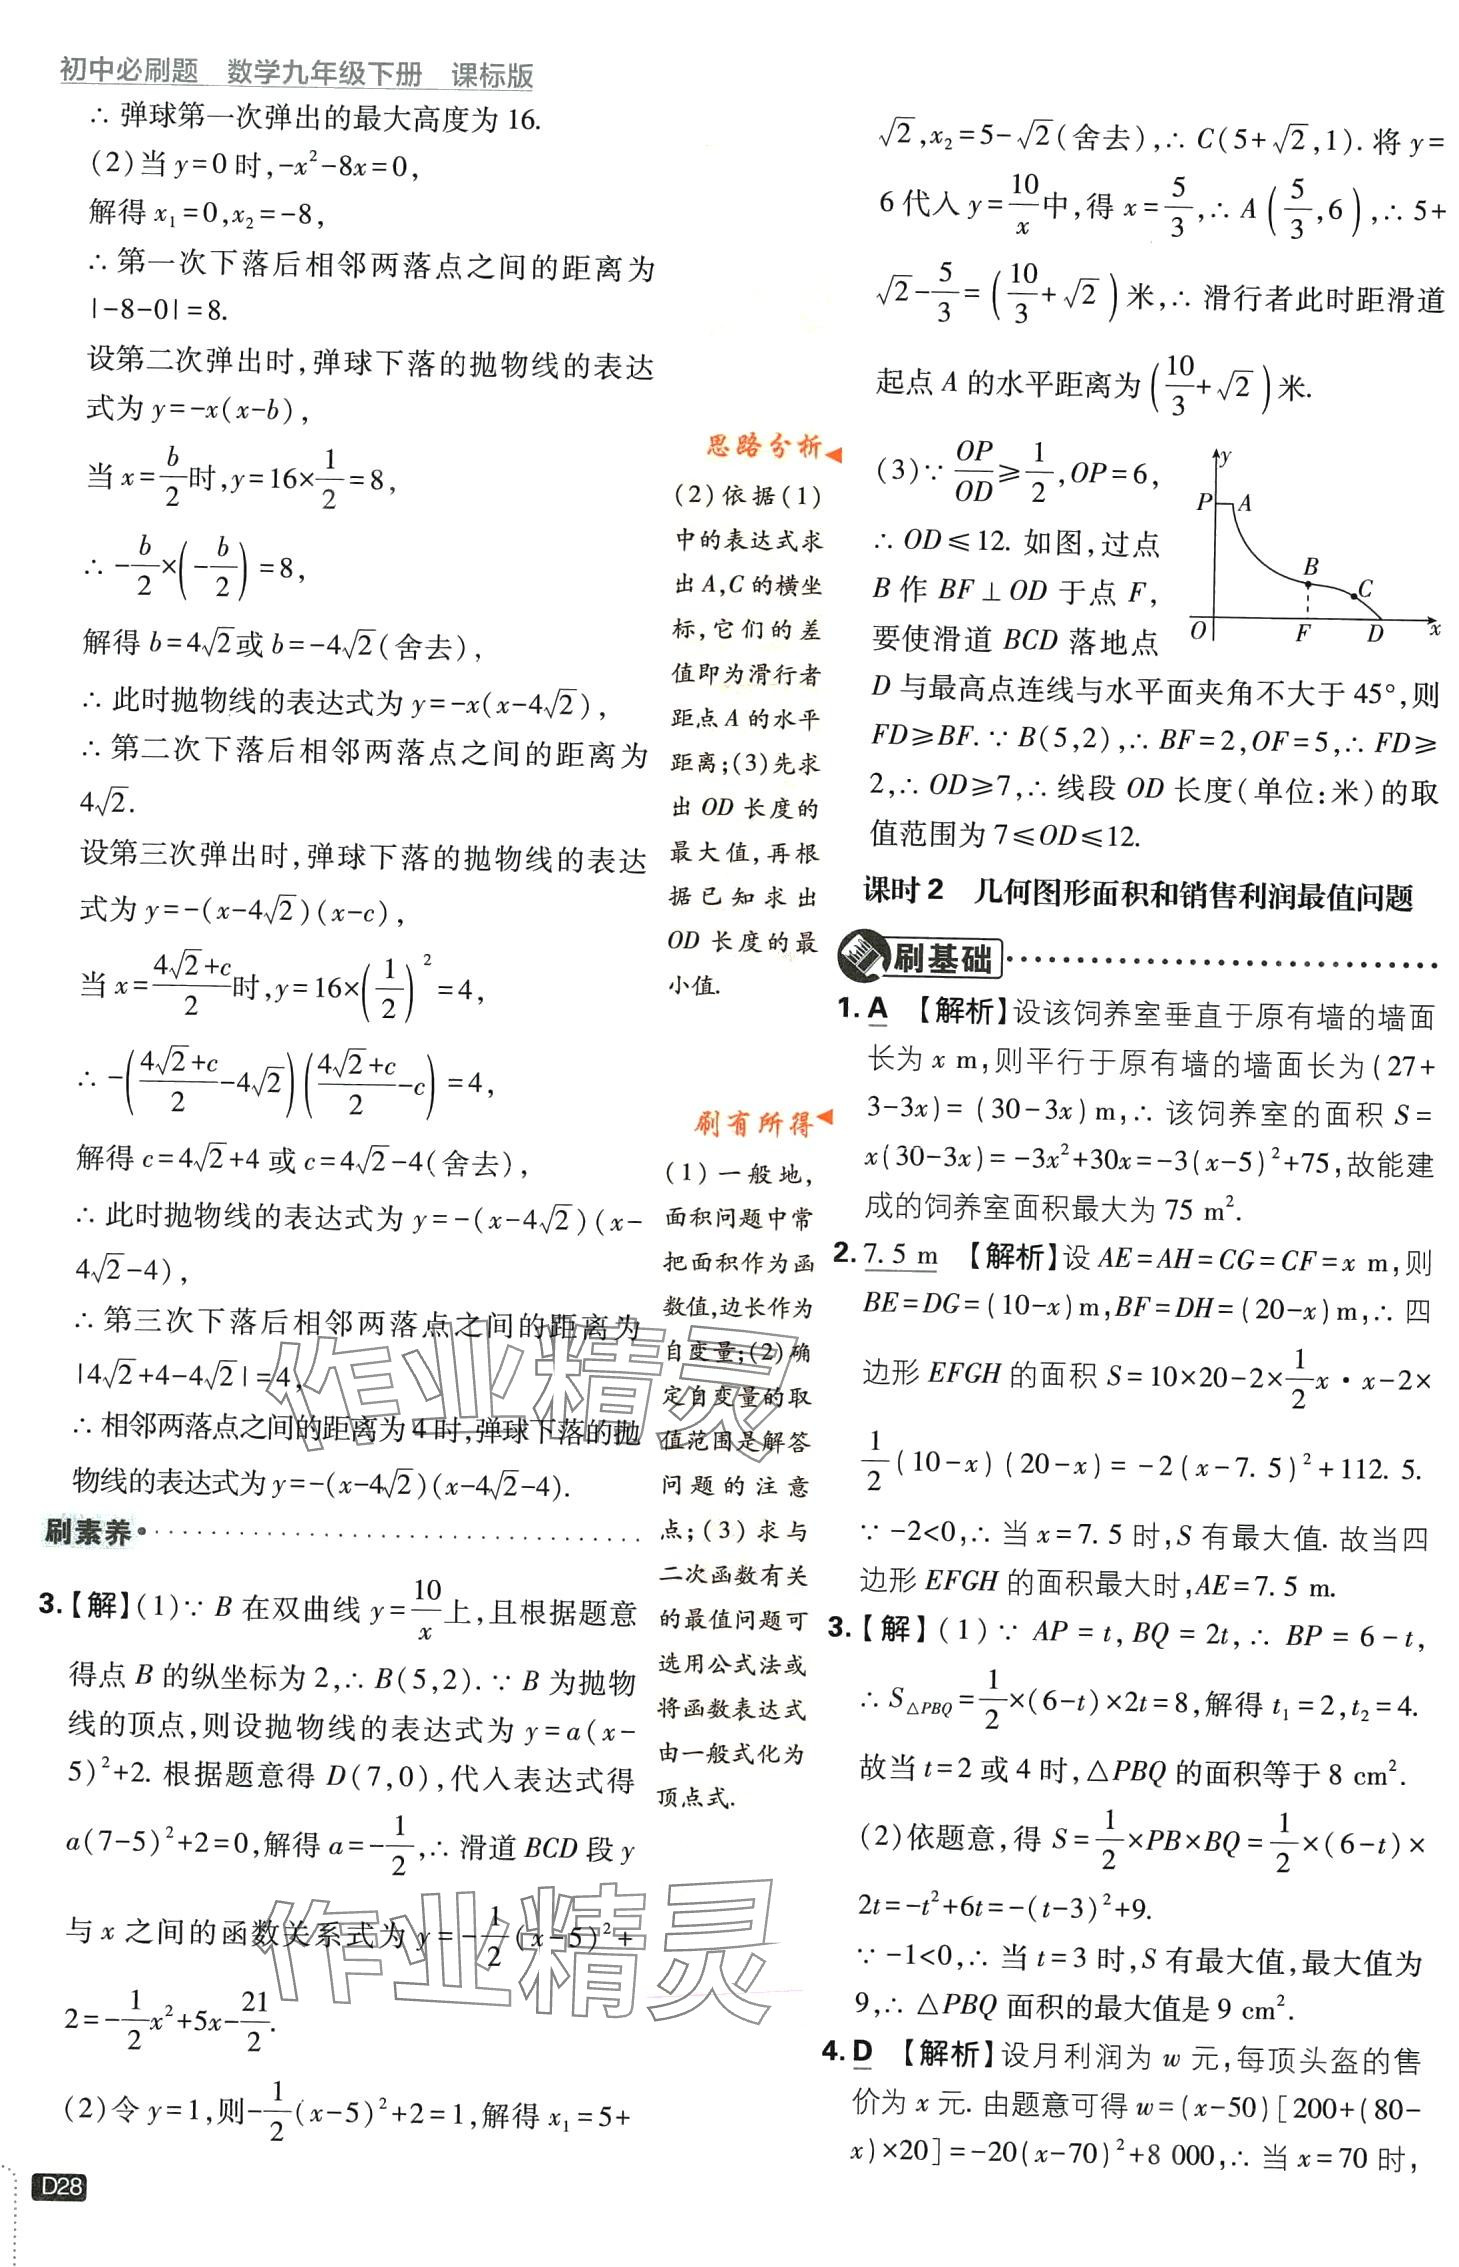 初中必刷题 数学九年级下册 课标版
∴ 弹球第一次弹出的最大高度为 16.
(2)当 y=0 时,-x²-8x=0,
解得 x₁=0,x₂=-8,
∴ 第一次下落后相邻两落点之间的距离为
|-8-0|=8.
设第二次弹出时,弹球下落的抛物线的表达
式为 y=-x(x-b),
当 x=b/2时,y=16×1/2=8,
∴ -b/2×(-b/2)=8,
解得 b=4√2或 b=-4√2(舍去),
∴ 此时抛物线的表达式为 y=-x(x-4√2),
∴ 第二次下落后相邻两落点之间的距离为
4√2.
设第三次弹出时,弹球下落的抛物线的表达
式为 y=-(x-4√2)(x-c),
当 x=(4√2+c)/2时,y=16×(1/2)²=4,
∴ -((4√2+c)/2-4√2)((4√2+c)/2-c)=4,
解得 c=4√2+4 或 c=4√2-4(舍去),
∴ 此时抛物线的表达式为 y=-(x-4√2)(x-
4√2-4),
∴ 第三次下落后相邻两落点之间的距离为
|4√2+4-4√2|=4,
∴ 相邻两落点之间的距离为 4 时,弹球下落的抛
物线的表达式为 y=-(x-4√2)(x-4√2-4).
刷素养
3.【解】(1)∵ B 在双曲线 y=10/x上,且根据题意
得点 B 的纵坐标为 2,∴ B(5,2). ∵ B 为抛物
线的顶点,则设抛物线的表达式为 y=a(x-
5)²+2. 根据题意得 D(7,0),代入表达式得
a(7-5)²+2=0,解得 a=-1/2,∴ 滑道 BCD 段 y
与 x 之间的函数关系式为 y=-1/2(x-5)²+
2=-1/2x²+5x-21/2.
(2)令 y=1,则-1/2(x-5)²+2=1,解得 x₁=5+
D28
思路分析
(2)依据(1)
中的表达式求
出 A,C 的横坐
标,它们的差
值即为滑行者
距点 A 的水平
距离;(3)先求
出 OD 长度的
最大值,再根
据已知求出
OD 长度的最
小值.
刷有所得
(1)一般地,
面积问题中常
把面积作为函
数值,边长作为
自变量;(2)确
定自变量的取
值范围是解答
问题的注意
点;(3)求与
二次函数有关
的最值问题可
选用公式法或
将函数表达式
由一般式化为
顶点式.
√2,x₂=5-√2(舍去),∴ C(5+√2,1). 将 y=
6 代入 y=10/x中,得 x=5/3,∴ A(5/3,6),∴ 5+
√2-5/3=(10/3+√2)米,∴ 滑行者此时距滑道
起点 A 的水平距离为(10/3+√2)米.
(3)∵ OP/OD≥1/2,OP=6,
∴ OD≤12. 如图,过点
B 作 BF⊥OD 于点 F,
要使滑道 BCD 落地点
y
P
A
B
C
O
F
D
x
D 与最高点连线与水平面夹角不大于 45°,则
FD≥BF. ∵ B(5,2),∴ BF=2,OF=5,∴ FD≥
2,∴ OD≥7,∴ 线段 OD 长度(单位:米)的取
值范围为 7≤OD≤12.
课时2 几何图形面积和销售利润最值问题
刷基础
1. A 【解析】设该饲养室垂直于原有墙的墙面
长为 x m,则平行于原有墙的墙面长为(27+
3-3x)=(30-3x)m,∴ 该饲养室的面积 S=
x(30-3x)=-3x²+30x=-3(x-5)²+75,故能建
成的饲养室面积最大为 75 m².
2. 7.5 m 【解析】设 AE=AH=CG=CF=x m,则
BE=DG=(10-x)m,BF=DH=(20-x)m,∴ 四
边形 EFGH 的面积 S=10×20-2×1/2x·x-2×
1/2(10-x)(20-x)=-2(x-7.5)²+112.5.
∵ -2<0,∴ 当 x=7.5 时,S 有最大值. 故当四
边形 EFGH 的面积最大时,AE=7.5 m.
3.【解】(1)∵ AP=t,BQ=2t,∴ BP=6-t,
∴ S△PBQ=1/2×(6-t)×2t=8,解得 t₁=2,t₂=4.
故当 t=2 或 4 时,△PBQ 的面积等于 8 cm².
(2)依题意,得 S=1/2×PB×BQ=1/2×(6-t)×
2t=-t²+6t=-(t-3)²+9.
∵ -1<0,∴ 当 t=3 时,S 有最大值,最大值为
9,∴ △PBQ 面积的最大值是 9 cm².
4. D 【解析】设月利润为 w 元,每顶头盔的售
价为 x 元. 由题意可得 w=(x-50)[200+(80-
x)×20]=-20(x-70)²+8 000,∴ 当 x=70 时,
作业精灵
作业精灵